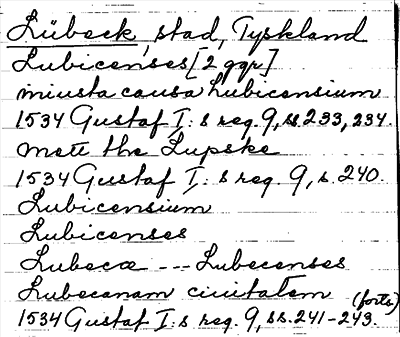 Lübeck, stad, Tyskland
Lubicenses [2 ggr]
iniusta causa Lubicensium
1534 Gustaf I:s reg. 9, ss. 233, 234.
mett the Lupske
1534 Gustaf I:s reg. 9, s. 240.
Lubicensium
Lubicenses
Lubecæ --- Lubecenses
Lubecanam ciuitatem (forts)
1534 Gustaf I:s reg. 9, ss. 241-243.